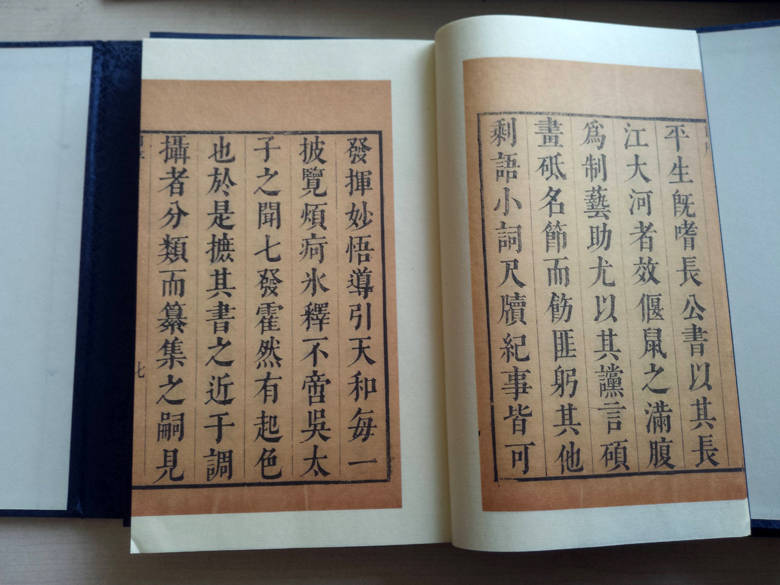 平生旣嗜長公書以其長
江大河者效偃鼠之滿腹
爲制藝助尤以其讜言碩
畫砥名節而飭匪躬其他
剩語小詞尺牘紀事皆可
發揮妙悟導引天和每一
披覽煩疴氷釋不啻吳太
子之聞七發霍然有起色
也於是摭其書之近于調
攝者分類而纂集之嗣見
七